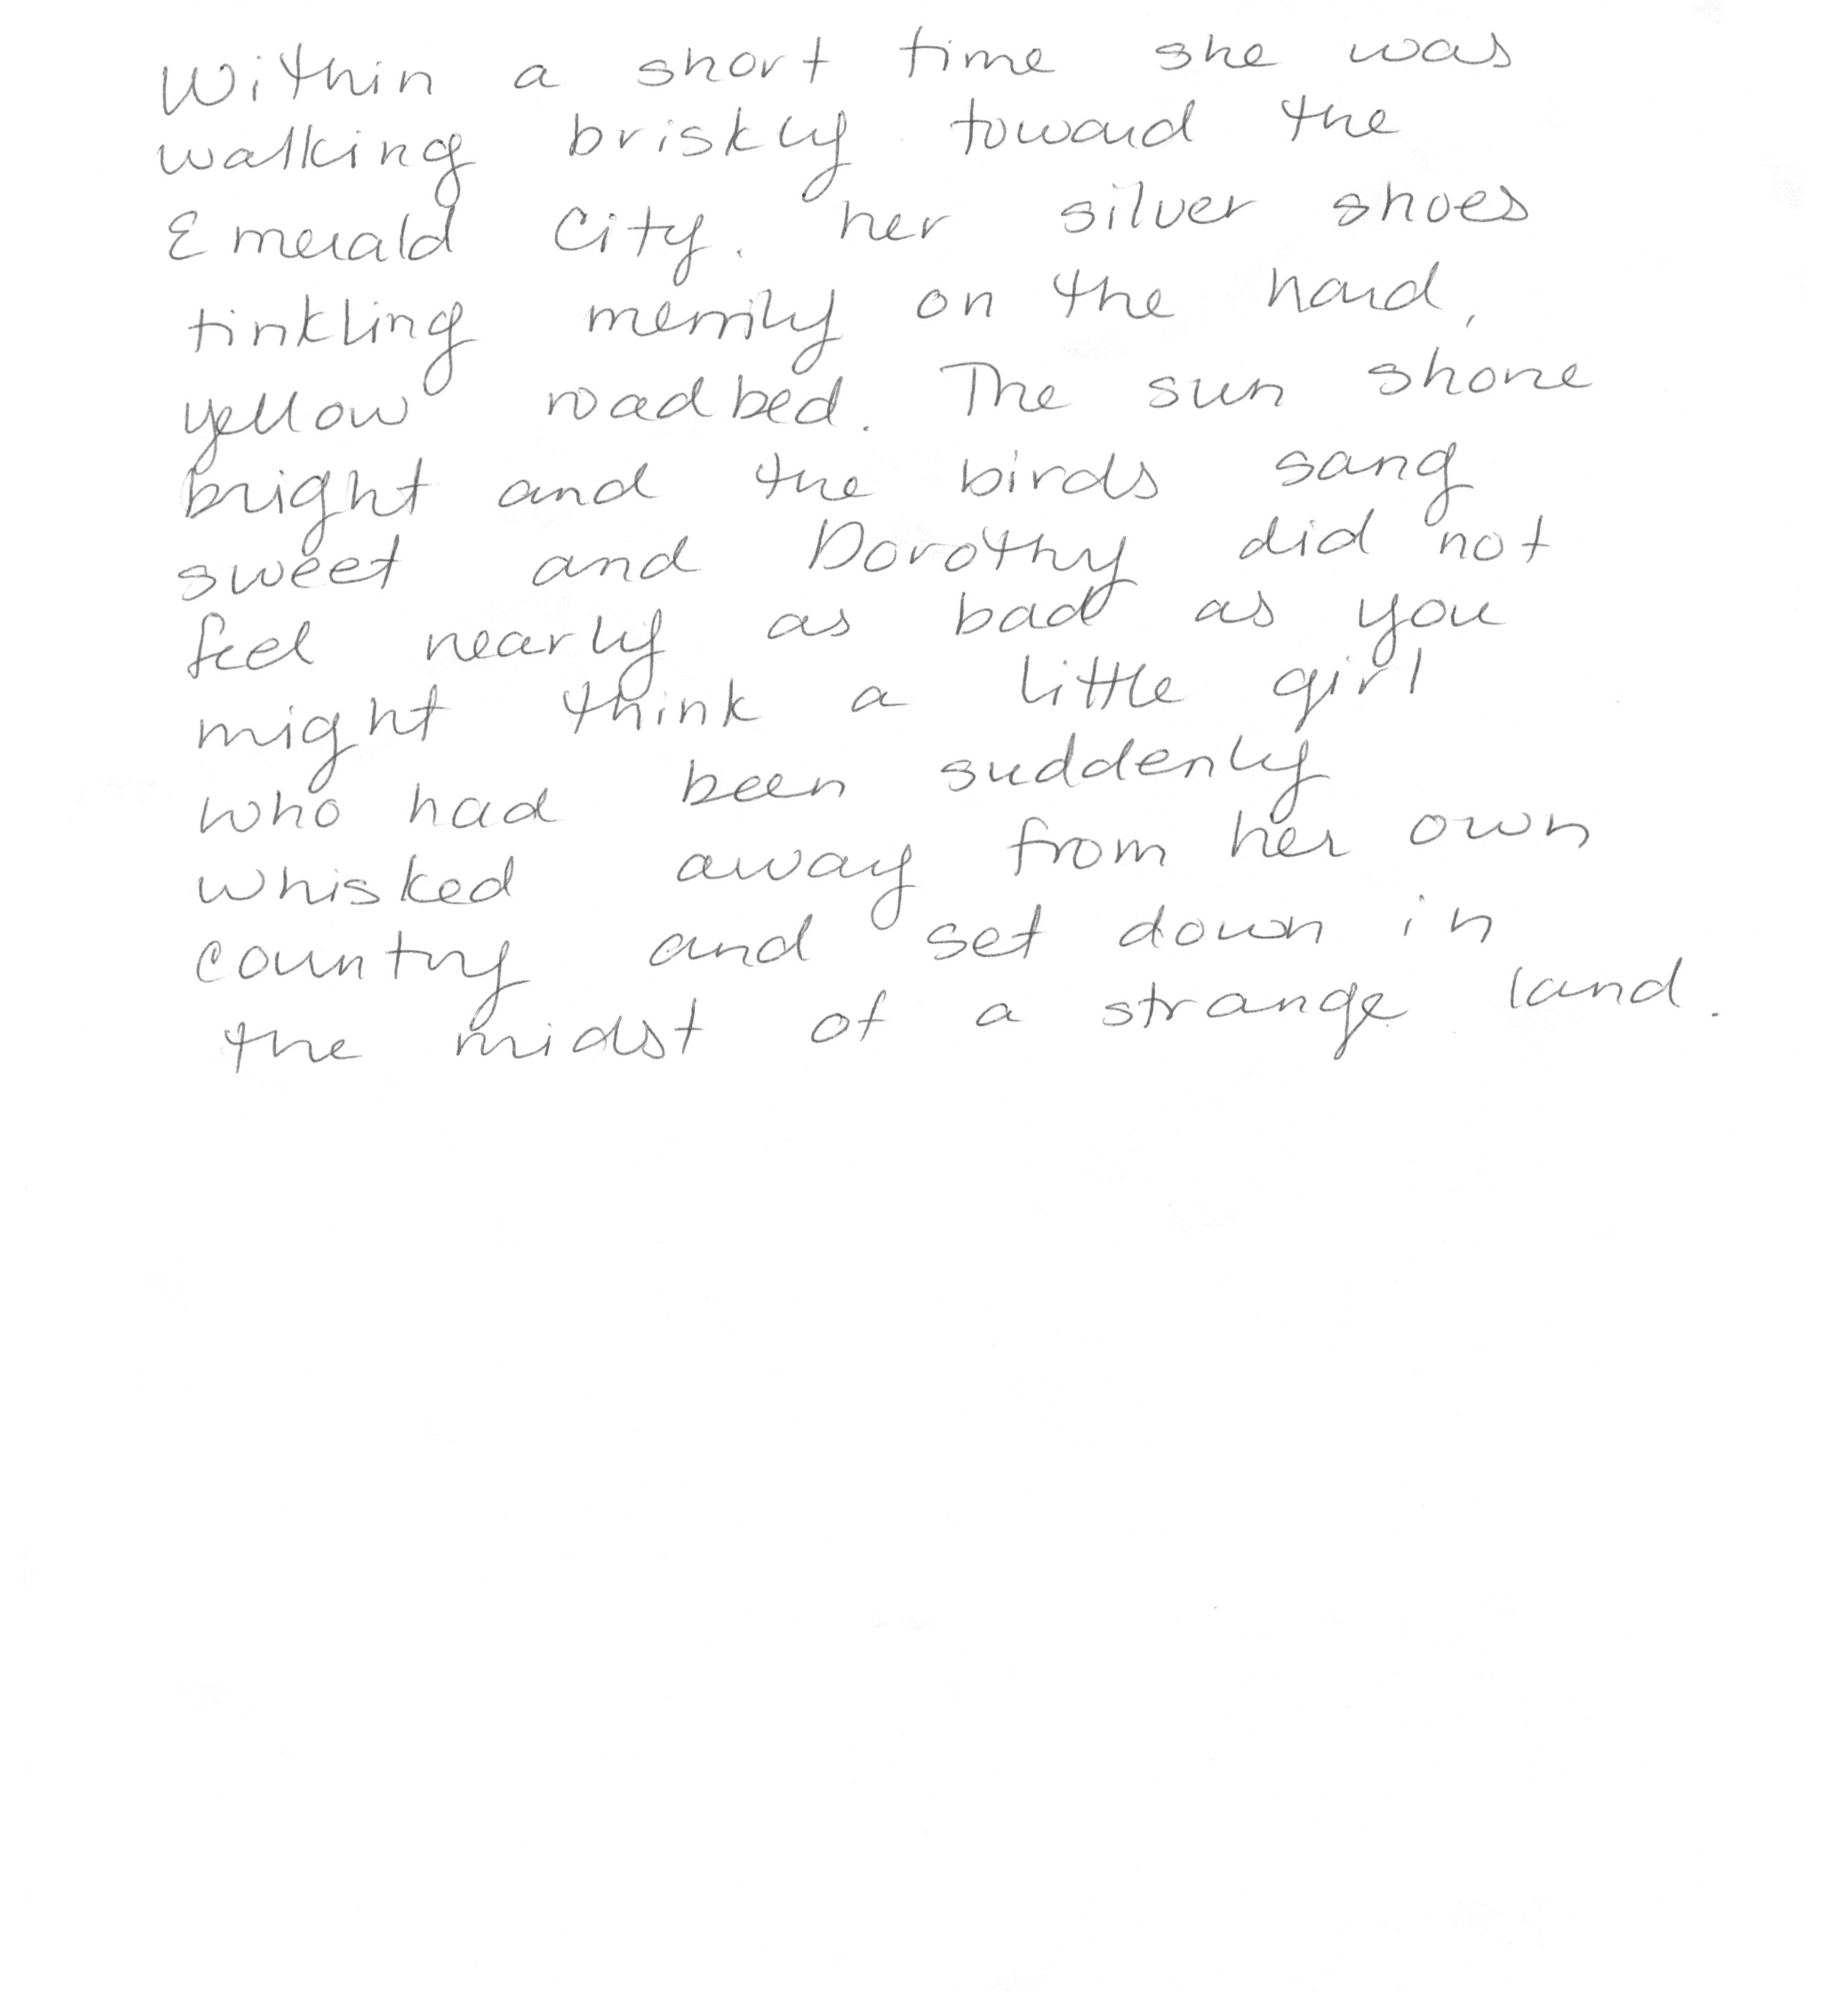 Within a short time she was
walking briskly toward the
Emerald City. her silver shoes
tinkling merrily on the hard,
yellow roadbed. The sun shone
bright and the birds sang
sweet and Dorothy did not
feel nearly as bad as you
might think a little girl
who had been suddenly
whisked away from her own
country and set down in
the midst of a strange land.